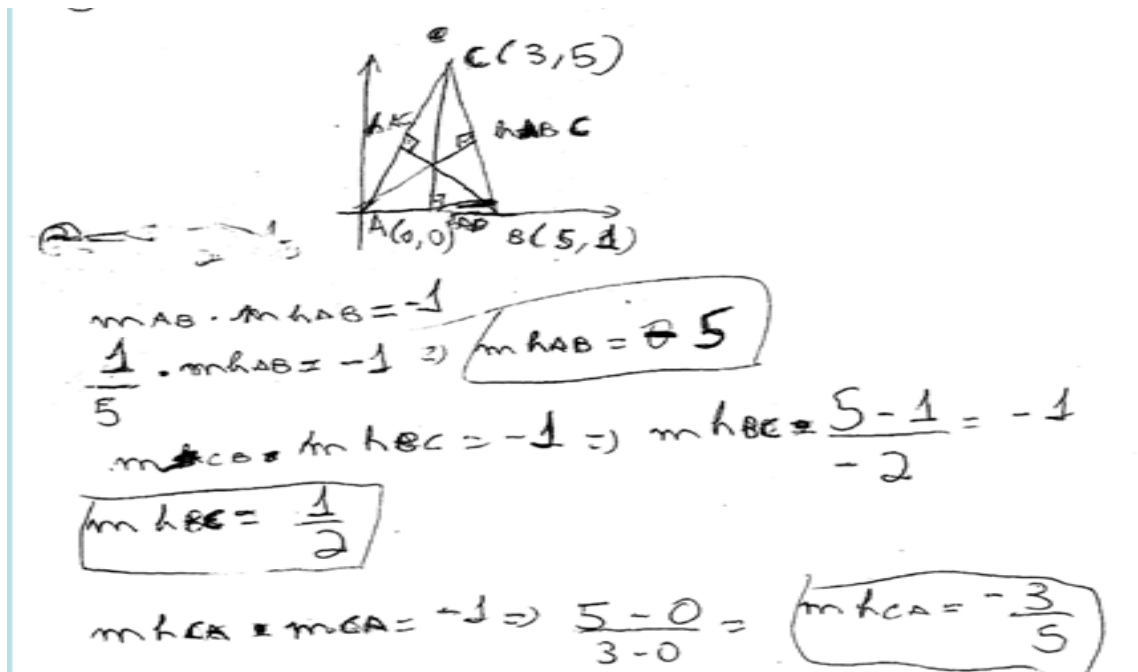 C(3,5)
hAC
hBC
A(0,0) B(5,1)
mAB . mhAB = -1
1/5 . mhAB = -1 => mhAB = 5
mCB . mhBC = -1 => mhBC . (5-1)/(-2) = -1
mhBC = 1/2
mhCA . mCA = -1 => (5-0)/(3-0) = mhCA = -3/5